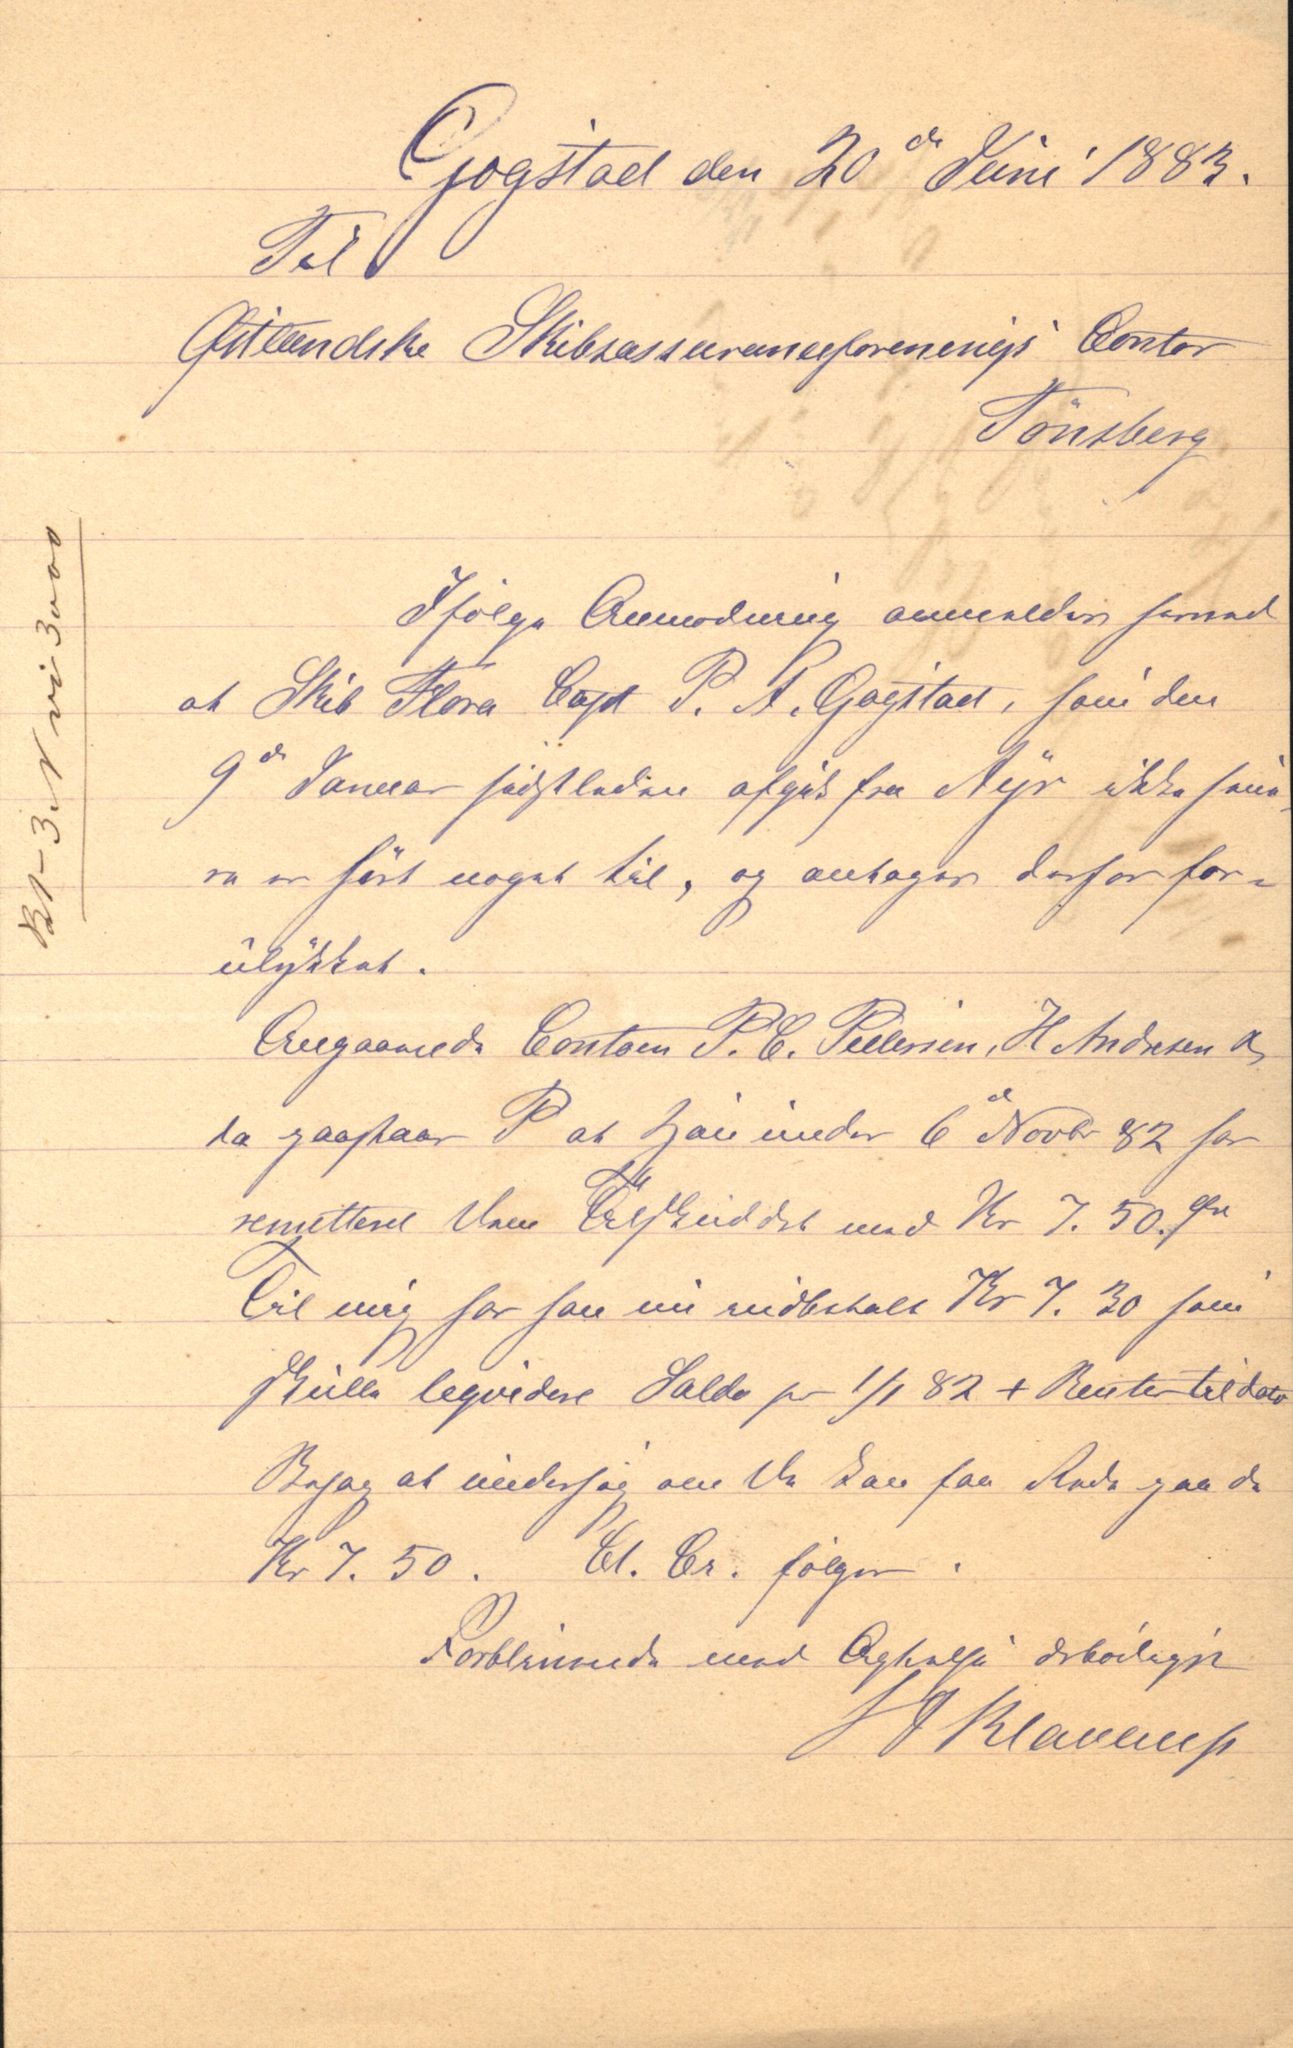 Gogstad den 20de Juni 1883.
Til
Østlandske Skibsassuranceforenings Contor
Tönsberg
Ifølge Anmodning anmeldes herved
at Skib Flora Capt P. A. Gogstad, som den
9de Januar sidstleden afgik fra Ayr ikke sene
re er hört noget til, og antages derfor for-
ulykket.
Angaaende Contoen P. C. Pedersen, H Andresen
da paastaar P at han under 6d Novbr 82 har
remitteret Dem Tilskuddet med Kr 7. 50. Øre
Til mig har han nu indbetalt Kr 7. 30 som
skulle liqvidere Saldo pr 1/1 82 + Renter til dato
Behag at undersøg om De kan faa Rede paa de
Kr 7. 50. Ct. Cr. følger.
Forblivende med Agtelse ærbödigst
Klaveness
3000